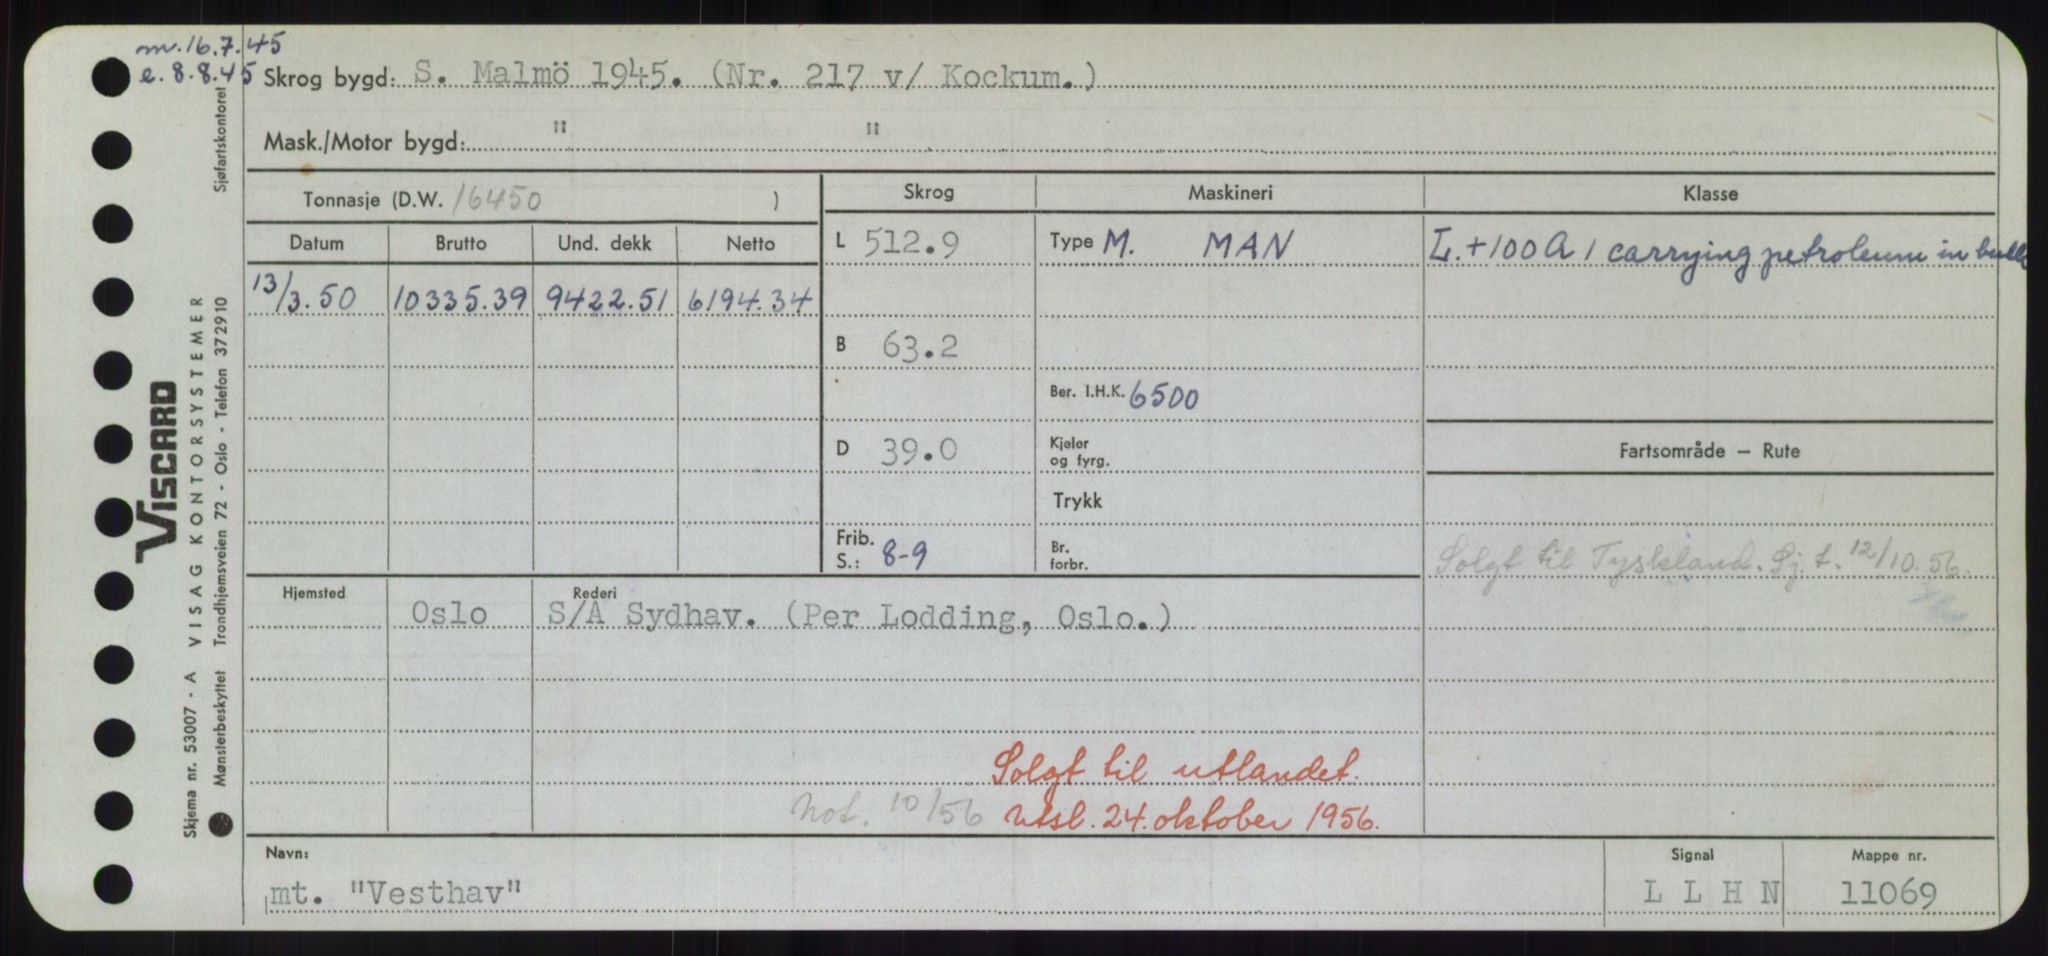 m. 16.7.45
e. 8.8.45
Skrog bygd: S. Malmö 1945. (Nr. 217 v/ Kockum.)
Mask./Motor bygd: " "
Tonnasje (D.W. 16450 )
Skrog Maskineri Klasse
Datum Brutto Und. dekk Netto
L 512.9 Type M. MAN L. + 100 A 1 carrying petroleum in bulk
13/3.50 10335.39 9422.51 6194.34
B 63.2
Ber. I.H.K. 6500
D 39.0 Kjeler og fyrg. Fartsområde — Rute
Trykk
Frib. S.: 8-9 Br. forbr. Solgt til Tyskland. Sj. t. 12/10.56.
Hjemsted Rederi
Oslo S/A Sydhav. (Per Lodding, Oslo.)
Solgt til utlandet.
Not. 10/56 Utsl. 24. oktober 1956.
Navn: Signal Mappe nr.
mt. "Vesthav" L L H N 11069
VISCARD
Skjema nr. 53007 - A VISAG KONTORSYSTEMER
Mønsterbeskyttet Trondhjemsveien 72 - Oslo - Telefon 372910 Sjøfartskontoret